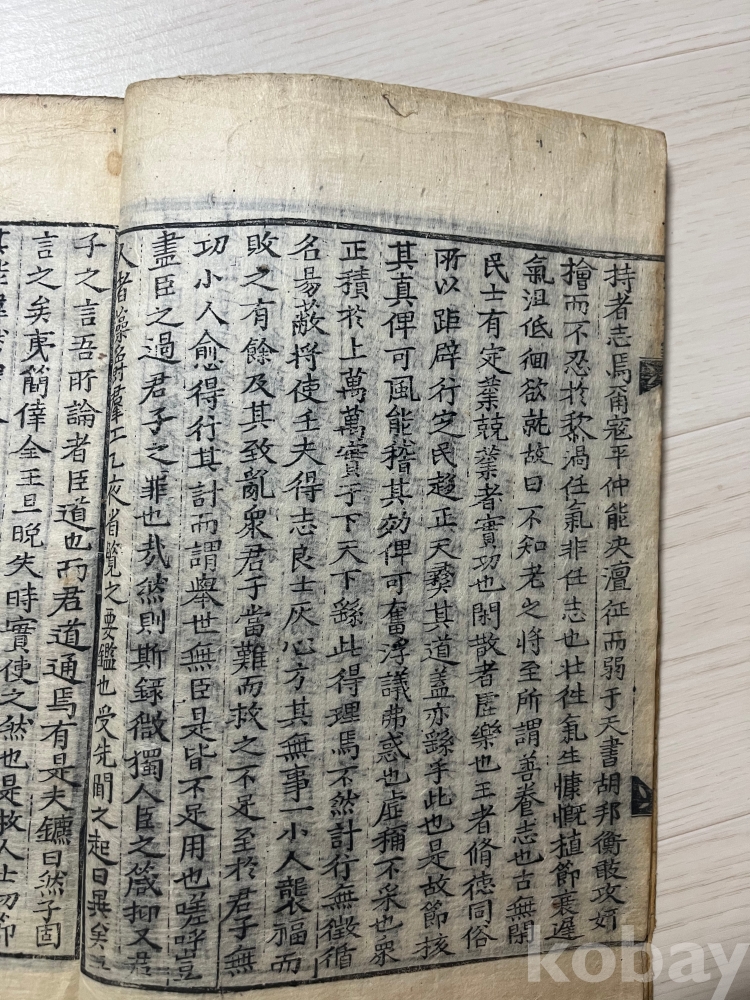 持者志焉爾寇平仲能決澶征而弱于天書胡邦衡敢攻奸
檜而不忍於黎渦任氣非任志也壯徃氣生慷慨植節衰遲
氣沮低徊欲就故曰不知老之將至所謂善養志也古無閑
民士有定業兢業者實功也閑散者虛樂也王者脩德同俗
所以距辟行定民趍正天彛其道盖亦繇乎此也是故節核
其真俾可風能稽其効俾可奮浮議弗惑也虛稱不采也衆
正積於上萬萬實于下天下繇此得理焉不然計行無徵循
名易蔽將使壬夫得志良士灰心方其無事一小人襲福而
敗之有餘及其致亂衆君子當難而救之不足至於君子無
功小人愈得行其計而謂舉世無臣是皆不足用也嗟呼豈
盡臣之過君子之罪也哉然則斯録微獨人臣之箴抑又君
人者藻羣工乙夜省覧之要鑑也受先聞之起曰畢矣
子之言吾所論者臣道也而君道通焉有是夫鑣曰然子固
言之矣夷簡倖全王旦晚失時實使之然也是故人士勿節
kobay